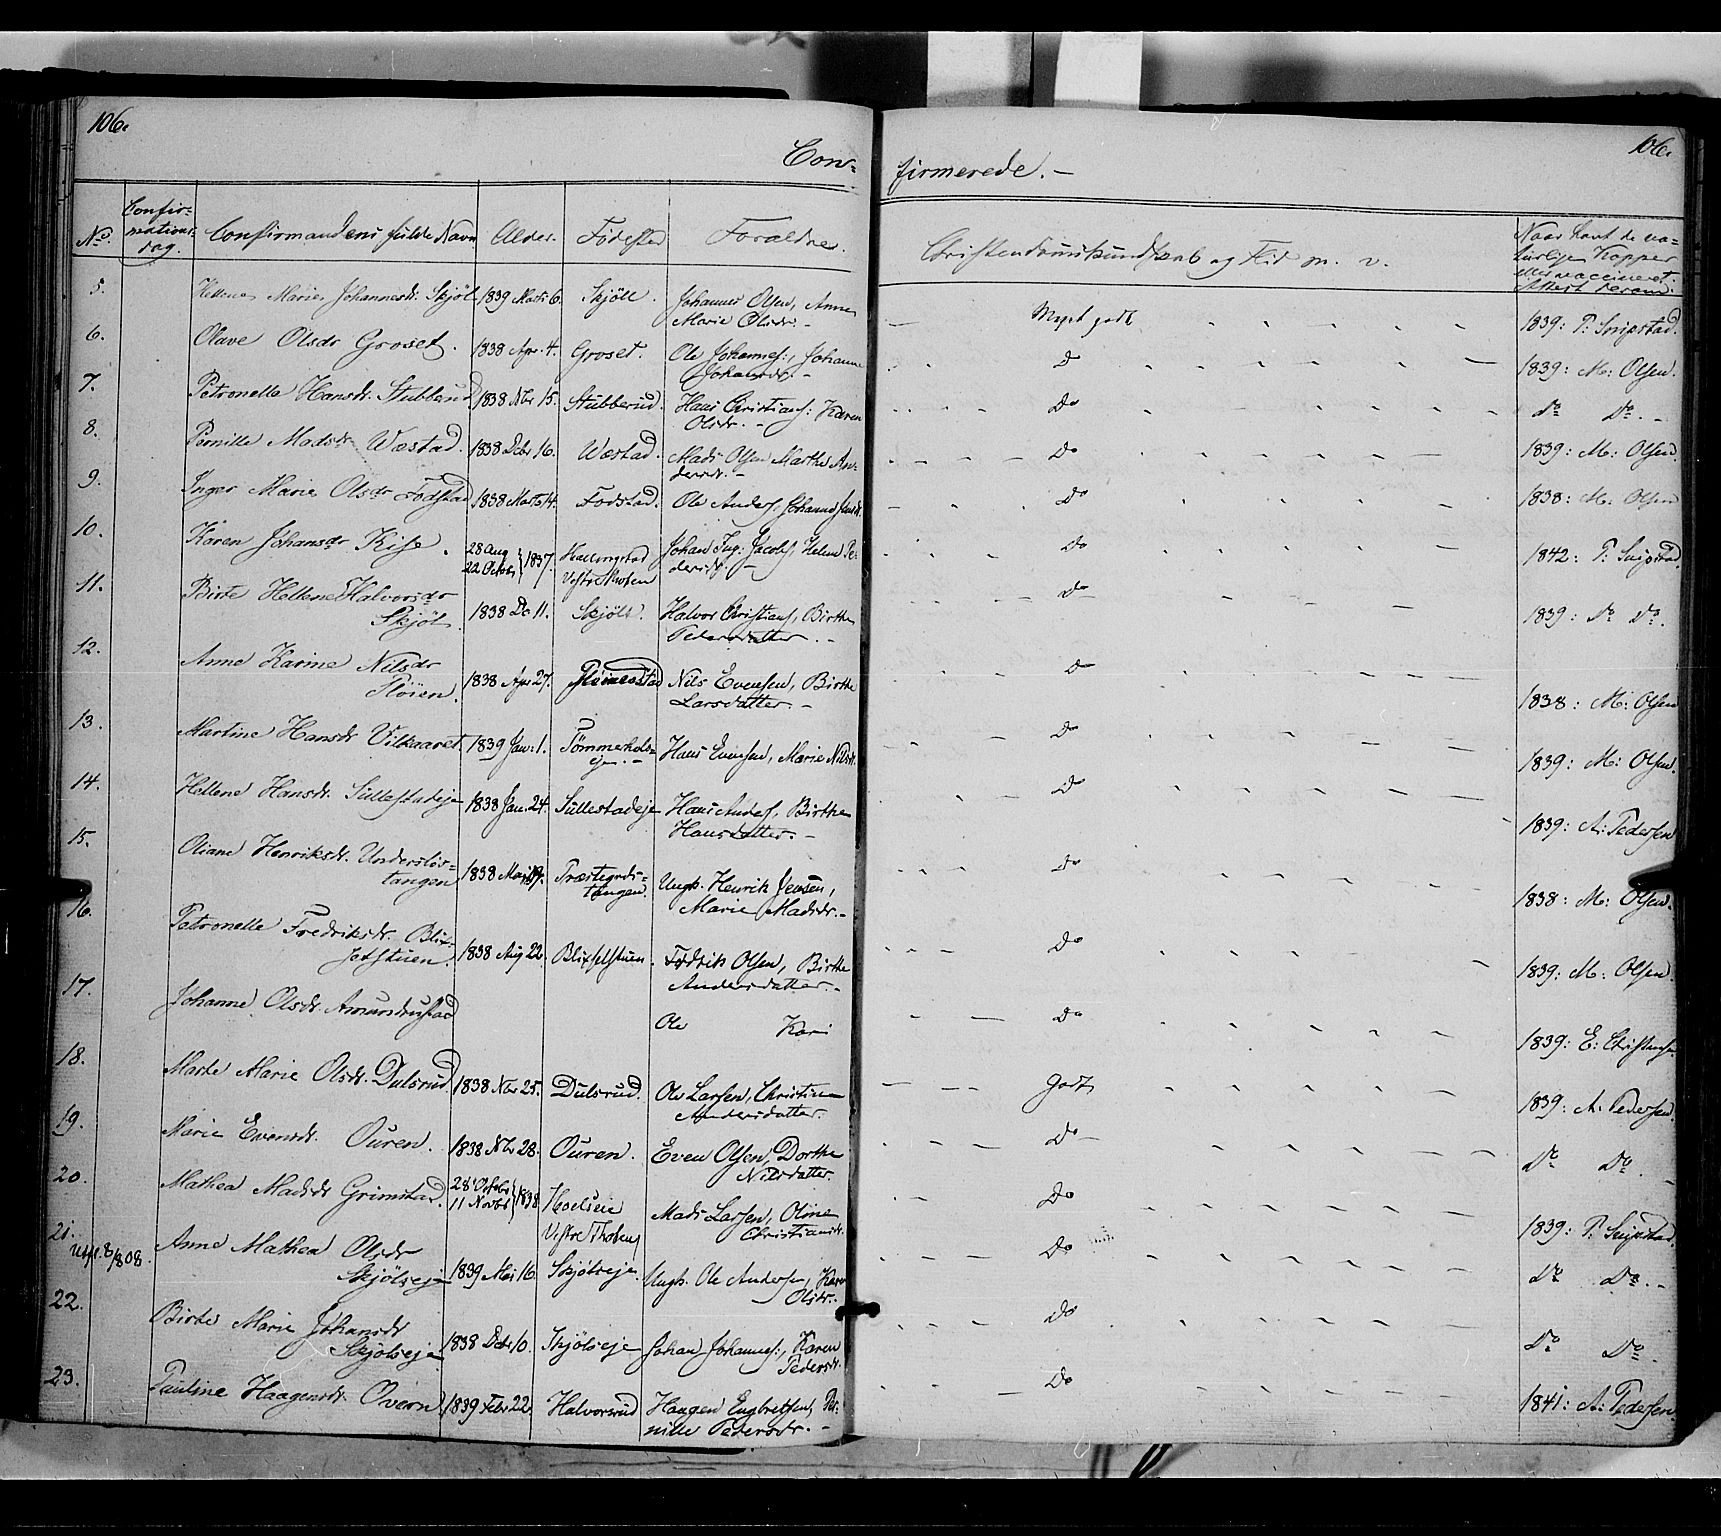 106.
106.
Con=
firmerede. —
No.
Confir=
mations
dag.
Confirmandens fulde Navn
Alder.
Fødested
Forældre.
Christendomskundskab og Flid m. v.
Naar havt de na=
turlige Kopper
eller vaccineret.
Attest derom.
5. Hellene Marie Johannesdr. Skjöl 1839 Marts 6. Skjöll. Johannes Olsen, Anne
Marie Olsdr. — Meget godt 1839: P: Snipstad.
6. Olave Olsdr Groset. 1838 Apr. 4. Groset. Ole Johannes:, Johanne
Johansdr. — Do 1839: M: Olsen.
7. Petronelle Hansdr. Stubberud 1838 Nbr 15. Stubberud. Hans Christians: Karen
Olsdr. — Do Do Do. —
8. Pernille Madsdr Wæstad. 1838 Debr 16. Wæstad. Mads Olsen Marthe An=
dersdr. — Do 1839: M: Olsen
9. Inger Marie Olsdr Fodstad 1838 Marts 14. Fodstad. Ole Anders. Johanne Jensdr. Do 1838: M: Olsen
10. Karen Johansdr Kise. 28 Aug
22 Octobr } 1837. Hallingstad
Vestre Thoten Johan Ing: Jacobs, Helene Pe=
dersdr. — Do 1842: P. Snipstad.
11. Birte Hellene Halvorsdr
Skjöl. 1838 De 11. Skjöll. Halvor Christians, Birthe
Pedersdatter. — Do 1839: Do Do.
12. Anne Karine Nilsdr
Pløien. 1838 Apr 27. Nils Evensen, Birthe
Larsdatter. — Do 1838: M: Olsen
13. Martine Hansdr Vilkaaret 1839 Jan: 1. Tömmerhols=
eje. — Hans Evensen, Marie Nilsdr. Do 1839: M: Olsen.
14. Hellene Hansdr. Sullestadeje 1838 Jan. 24. Sullestadeje Hans Anders, Birthe
Hansdatter. — Do 1839: A: Pedersen
15. Oliane Henriksdr.
tangen 1838 Mai 19. Præstegrds=
tangen. Ungk. Henrik Jensen,
Marie Madsdr. — Do 1838: M: Olsen.
16. Petronelle Fredriksdr. Blix=
setstuen. 1838 Aug 22. Blixsetstuen. Fredrik Olsen, Birthe
Andersdatter. — Do 1839: M: Olsen
17. Johanne Olsdr. Amundrustad Ole Kari Do 1839: E: Christensen
18. Marte Marie Olsdr. Dulsrud 1838 Nbr 25. Dulsrud. Ole Larsen, Christine
Andersdatter. Godt 1839: A: Pedersen
19. Marie Evensdr. Ouren. 1838 Nbr 28. Ouren. Even Olsen, Dorthe
Nilsdatter. Do Do Do.
20. Mathea Madsdr Grimstad. 28 Octobr
11 Novbr } 1838 Hoelseie
Vestre Thoten Mads Larsen, Oline
Christiansdr. Do 1839: P. Snipstad.
21. Utst. 8/8 08. Anne Mathea Olsdr
Skjölseje 1839 Mai 16. Skjölseje. Ungk. Ole Andersen, Karen
Olsdr. Do Do Do. —
22. Birte Marie Johansdr
Skjölseje 1838 Debr 10. Skjölseje Johan Johannes:, Karen
Pedersdr. Do Do Do.
23. Pauline Haagensdr. Overn 1839 Febr 22. Halvorsrud Haagen Engbretsen, Per=
nille Pedersdr. — Do 1841: A: Pedersen